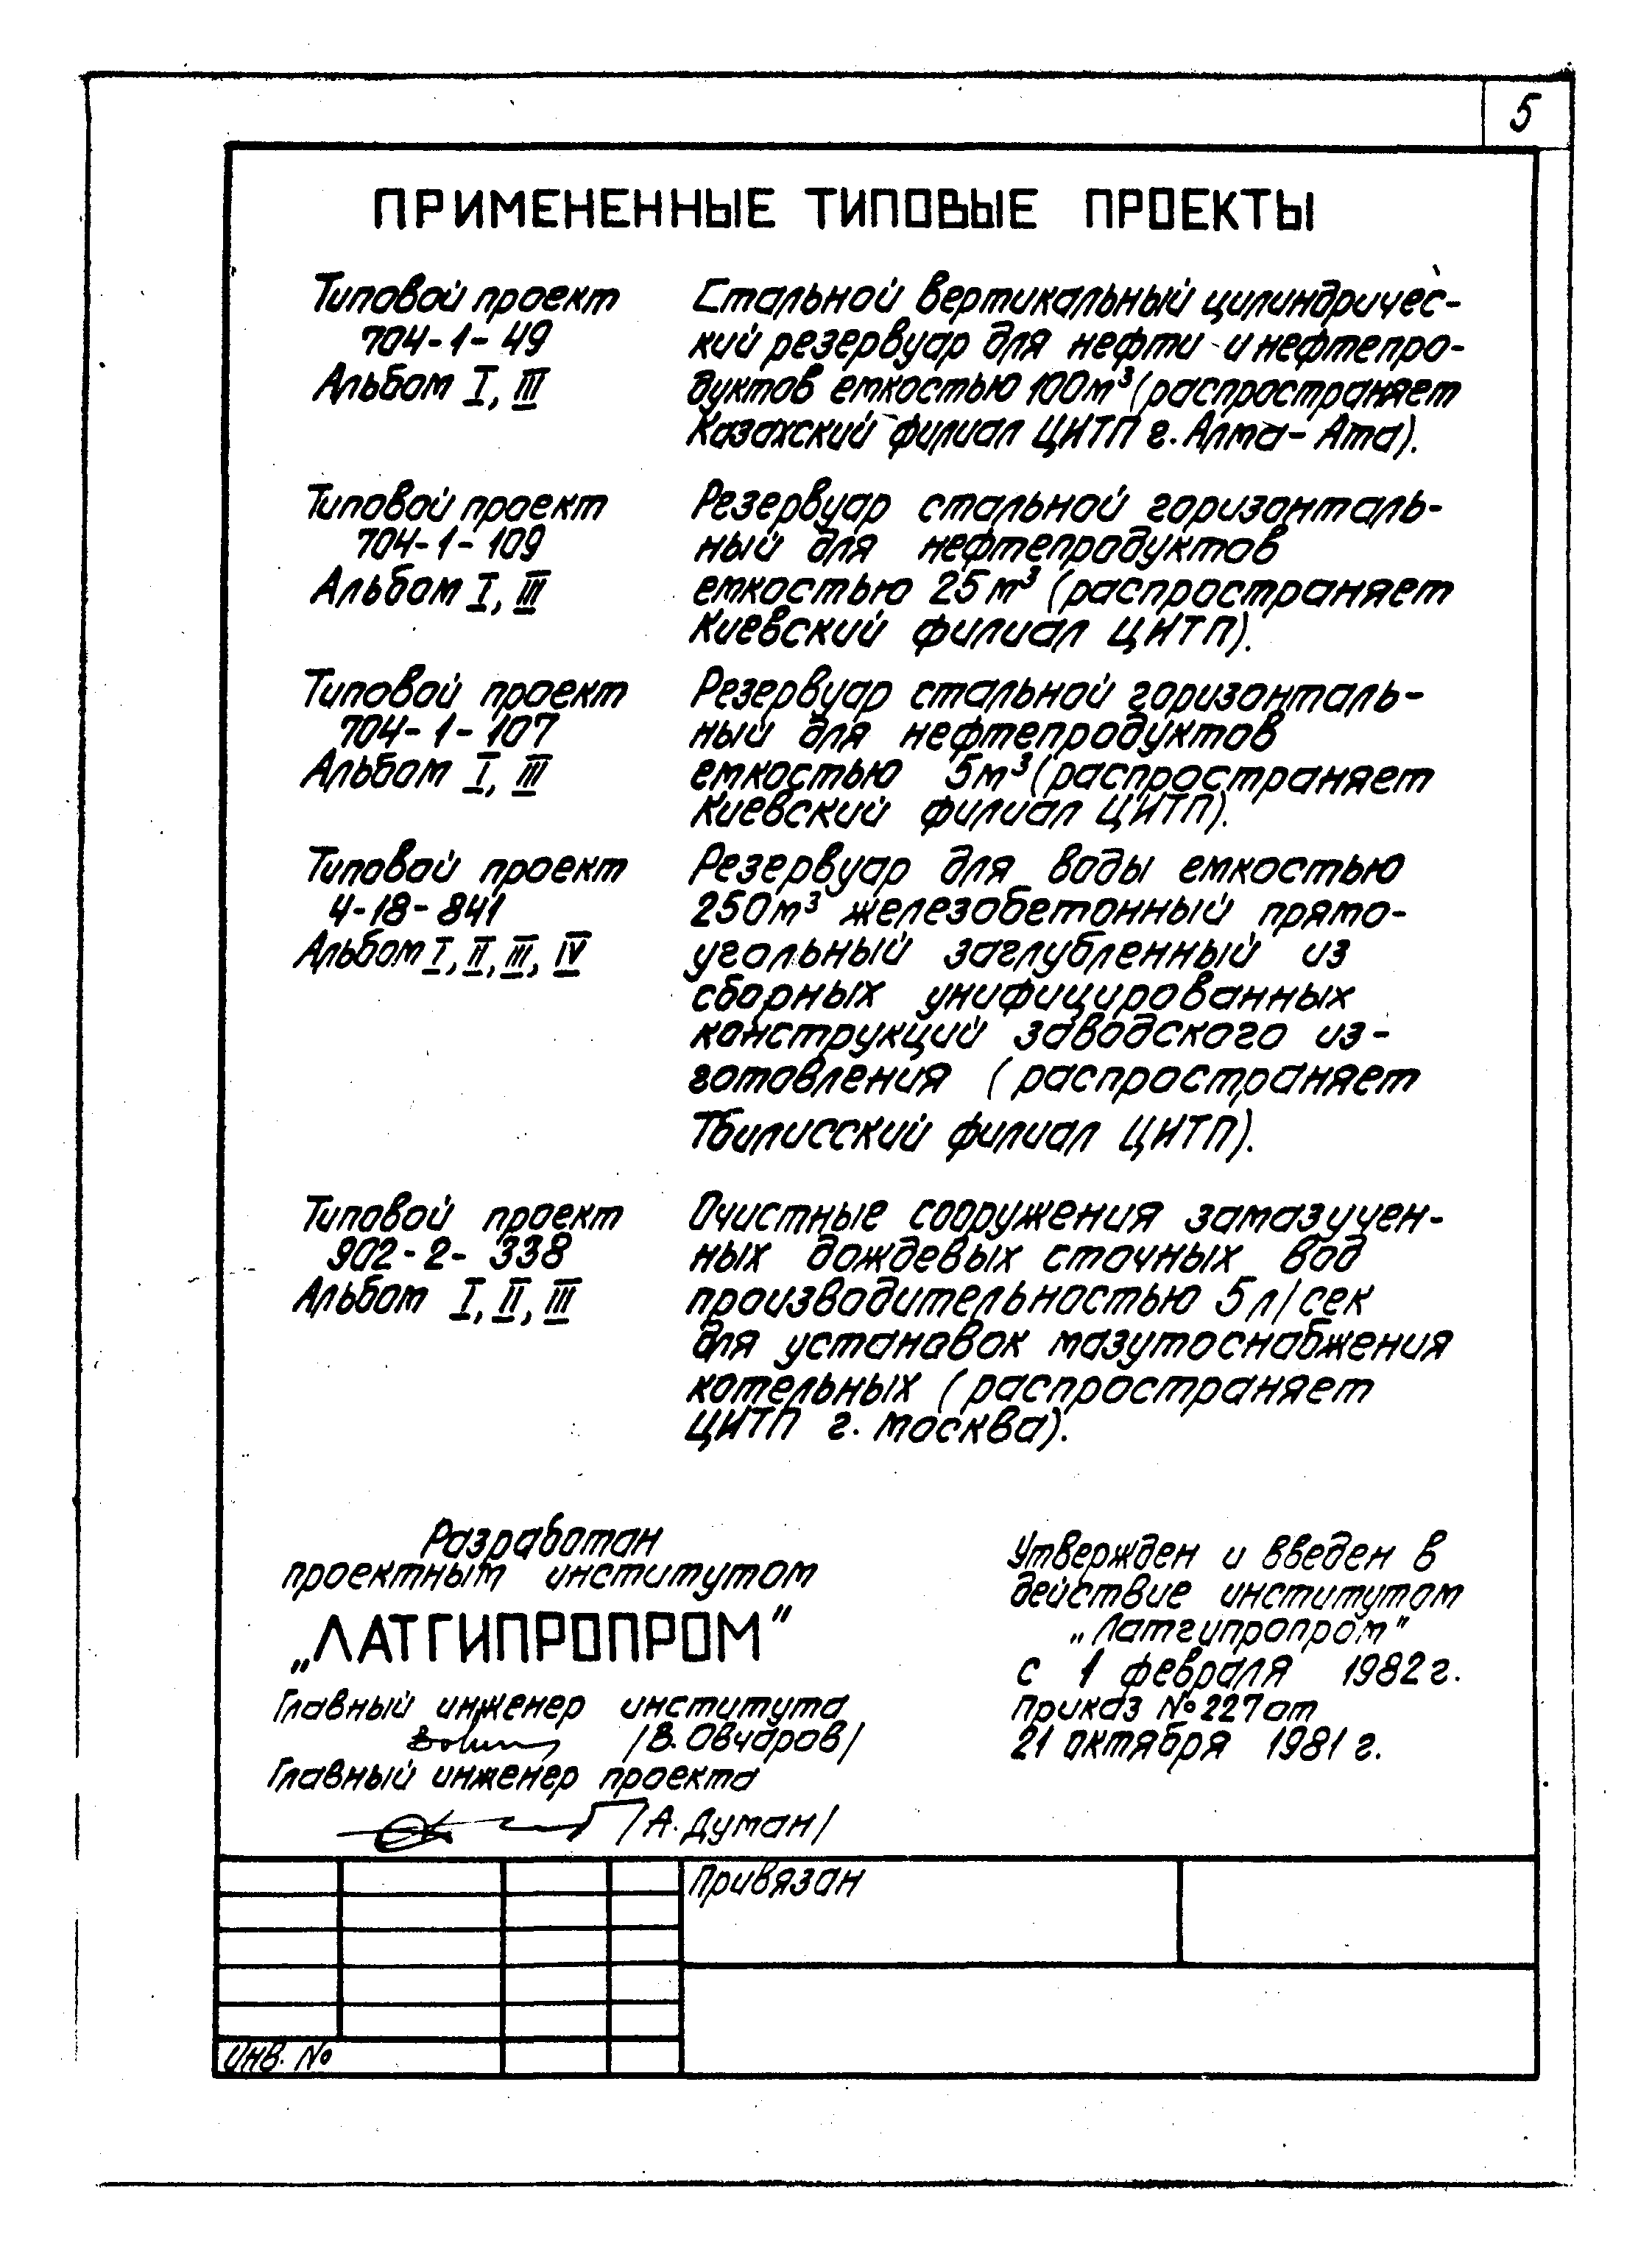 5
ПРИМЕНЕННЫЕ ТИПОВЫЕ ПРОЕКТЫ
Типовой проект
704-1-49
Альбом I, III
Стальной вертикальный цилиндричес-
кий резервуар для нефти и нефтепро-
дуктов емкостью 100м³ (распространяет
Казахский филиал ЦИТП г. Алма-Ата).
Типовой проект
704-1-109
Альбом I, III
Резервуар стальной горизонталь-
ный для нефтепродуктов
емкостью 25м³ (распространяет
Киевский филиал ЦИТП).
Типовой проект
704-1-107
Альбом I, III
Резервуар стальной горизонталь-
ный для нефтепродуктов
емкостью 5м³ (распространяет
Киевский филиал ЦИТП).
Типовой проект
4-18-841
Альбом I, II, III, IV
Резервуар для воды емкостью
250м³ железобетонный прямо-
угольный заглубленный из
сборных унифицированных
конструкций заводского из-
готовления (распространяет
Тбилисский филиал ЦИТП).
Типовой проект
902-2-338
Альбом I, II, III
Очистные сооружения замазучен-
ных дождевых сточных вод
производительностью 5л/сек
для установок мазутоснабжения
котельных (распространяет
ЦИТП г. Москва).
Разработан
проектным институтом
„ЛАТГИПРОПРОМ"
Главный инженер института
/В. Овчаров/
Главный инженер проекта
/А. Думан/
Утвержден и введен в
действие институтом
„Латгипропром"
с 1 февраля 1982г.
Приказ №227 от
21 октября 1981г.
Привязан
Инв. №